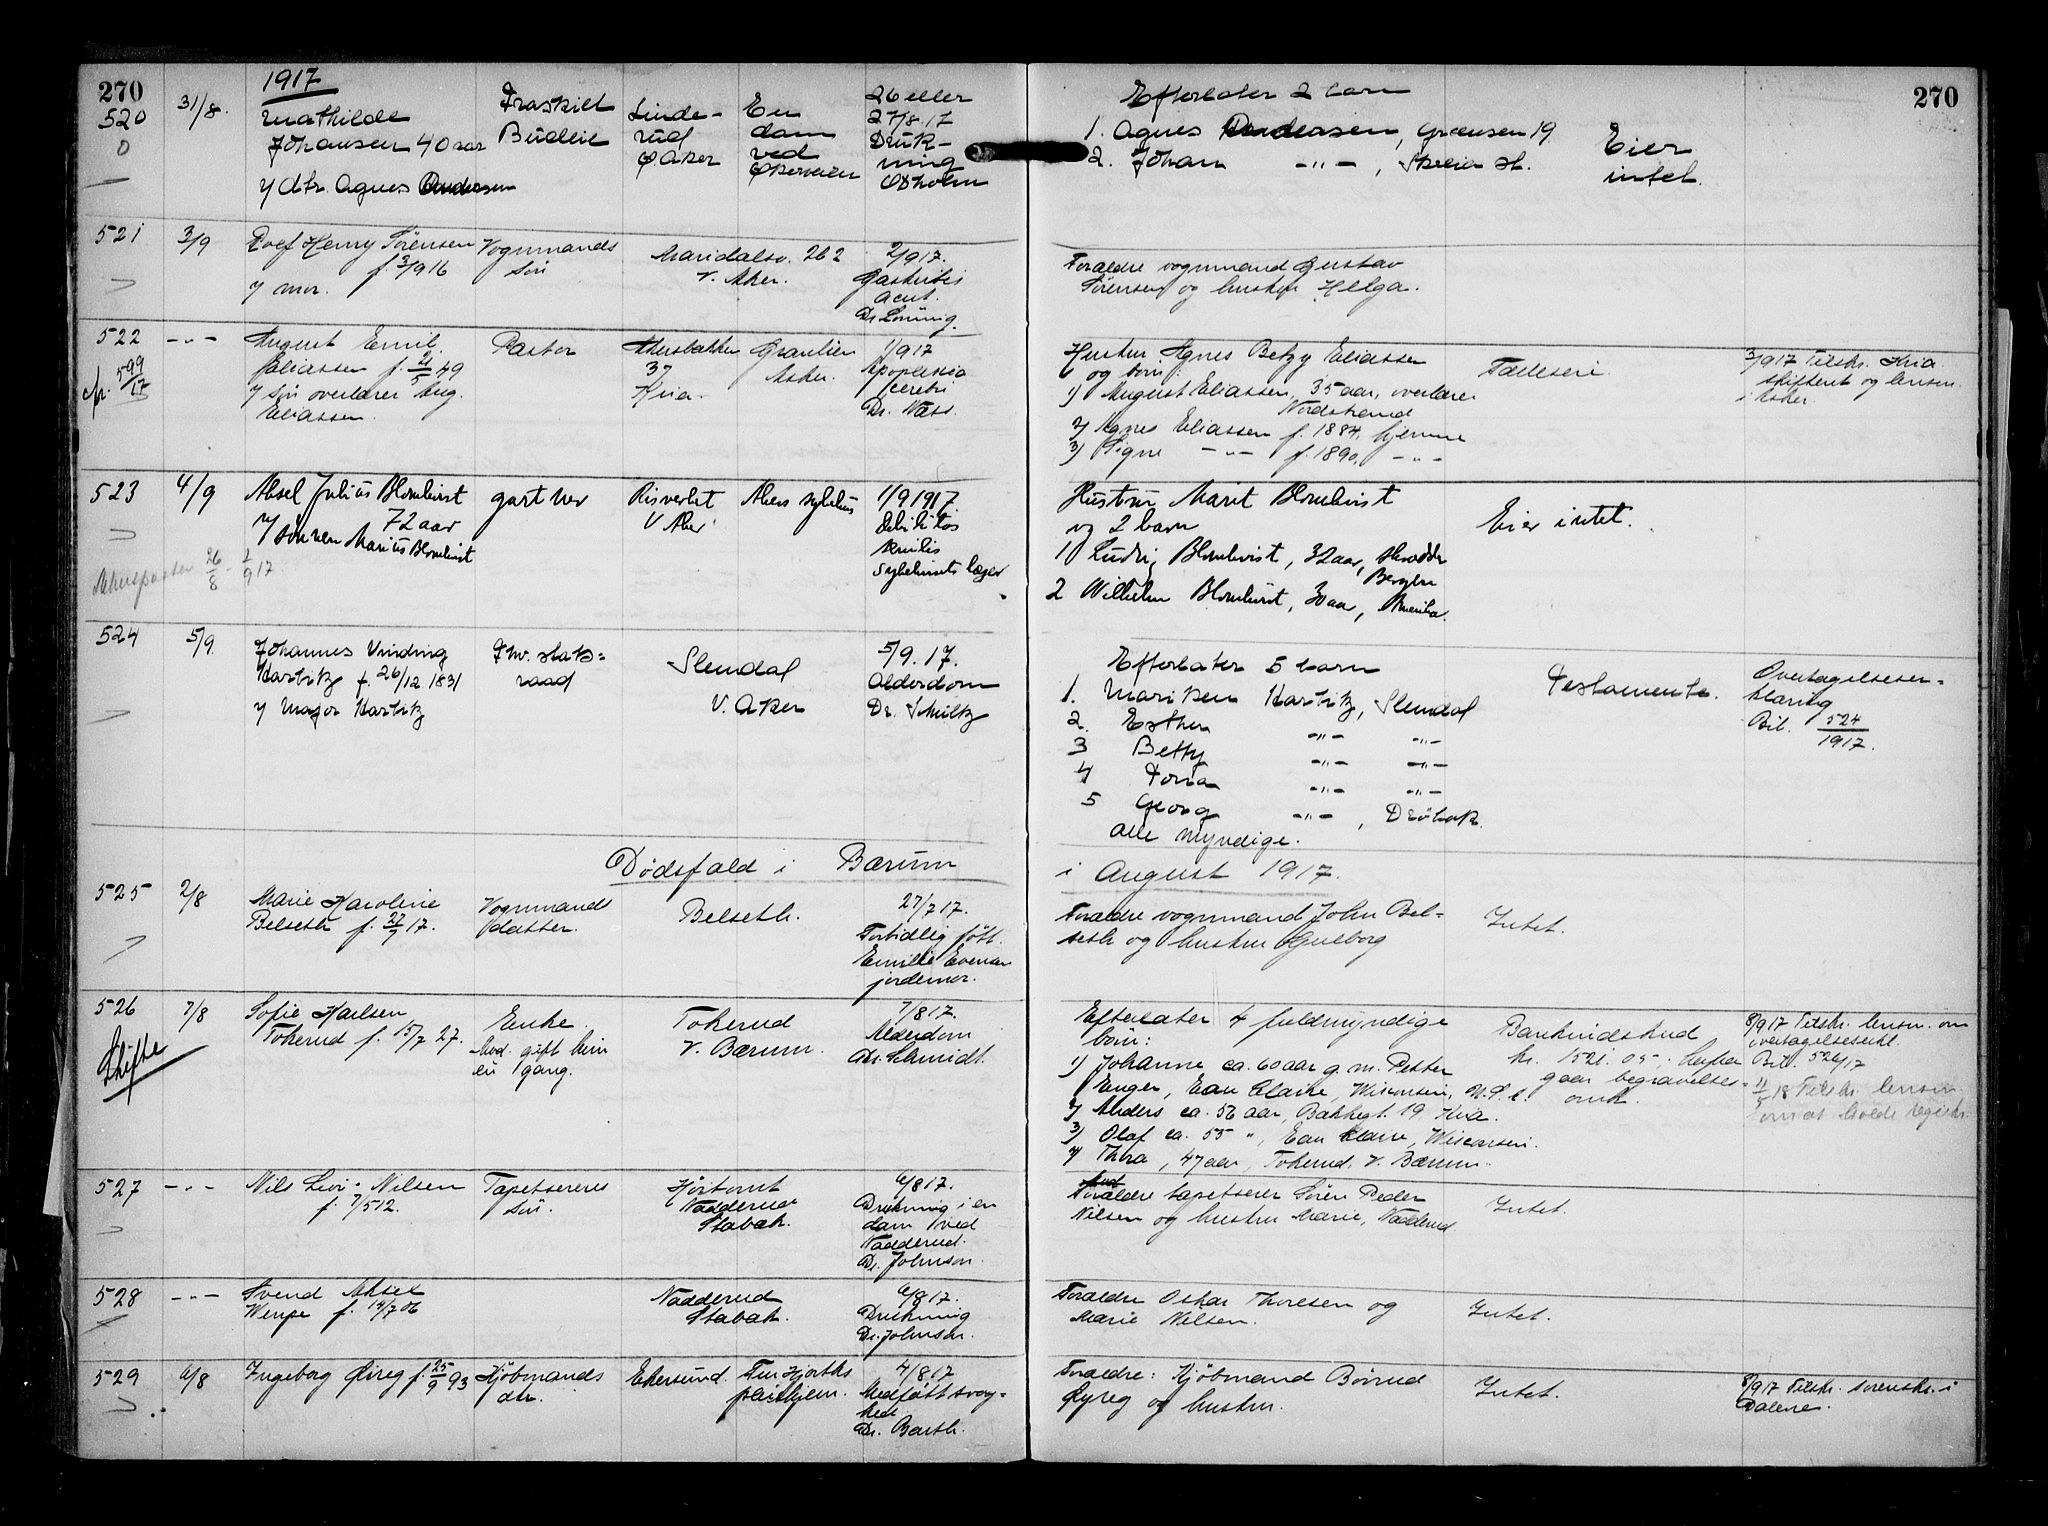 270
1917
520
31/8.
Mathilde
Johansen 40 aar
v/ dtr. Agnes Andersen
Fraskilt
Budeie
Linde-
rud
Ø. Aker
En
dam
ved
Økernveien
26 eller
27/8.17
Druk-
ning
Efterlater 2 barn
1. Agnes Andersen, Grænsen 19
2. Johan -"-,
Eier
intet.
270
521
3/9
Henry Sørensen
f. 3/9 16
v/ mor.
Vognmands
søn
Maridalsv. 262
V. Aker.
2/9 17.
Gastritis
acut.
Forældre vognmand Gustav
Sørensen og hustru Helga.
522
-"-
cfr. 599/17
August Emil
Eliassen f. 49
v/ søn overlærer Aug.
Eliassen.
Pastor
Akersbakken
37
Kria.
Graulien
Asker.
1/9 17
Apoplexia
cerebri
Dr. Næss.
Hustru Agnes Betzy Eliassen
og børn:
1) August Eliassen, 35 aar, overlærer
Nordstrand
2) Agnes Eliassen f. 1884, hjemme
3) Signe -"- f. 1890, -"-
Fælleseie.
3/9 17 Tilskr. Kria
skifteret og lensm.
i Asker.
523
4/9
Aksel Julius Blomkvist
72 aar
v/ sønnen Marius Blomkvist
Akersposten 26/8 - 2/9 17.
gartner
Risverket
V Aker
Akers sykehus
1/9 1917.
Debilitas
senilis
Sykehusets læger
Hustru Marit Blomkvist
og 2 barn
1 Ludvig Blomkvist, 32 aar, skrædder
Bergen
2 Wilhelm Blomkvist, 30 aar, Amerika.
Eier intet.
524
5/9
Johannes Vinding
Harbitz f. 26/12 1831
v/ Major Harbitz
Fhv. stats=
raad
Slemdal
V. Aker
5/9. 17.
Alderdom
Dr. Schultz
Efterlater 5 barn
1. Mariken Harbitz, Slemdal
2. Esther -"- -"-
3 Betty -"- -"-
4 -"- -"-
5 Georg -"-, Drøbak.
alle myndige.
Testamente.
Overtagelseser=
klæring
Bil. 524/1917.
Dødsfald i Bærum
i August 1917.
525
2/8
Marie Karoline
Belseth f. 27/7 17.
Vognmands
datter.
Belseth.
27/7 17.
Fortidlig født.
Emilie Evensen
jordemor.
Forældre vognmand John Bel=
seth og hustru Gulborg
Intet.
526
7/8
Skifte
Sofie Karlsen
Tokerud f. 15/7 27.
Enke.
Avd. gift kun
en gang.
Tokerud
V. Bærum.
7/8 17.
Alderdom
Dr. Schmidt.
Efterlater 4 fuldmyndige
børn:
1) Johanne ca. 60 aar g. m. Petter
Enger, Eau Claire, Wisconsin, N.S.A.
2) Anders ca. 56 aar, Bakkegt. 19 Kria.
3) Olaf ca. 55 ", Eau Claire, Wisconsin.
4) Thea, 47 aar, Tokerud, V. Bærum.
Bankindskud
kr. 1521.05, herfra
gaar begravelses=
omk.
8/9 17 Tilskr. lensm. om
overtagelseserkl.
Bil. 526/17
11/5 18 Tilskr. lensm.
om at holde registr.
527
-"-
Nils Levi Nilsen
f. 7/5 12.
Tapetserers
søn.
Hjortomt
Nadderud
Stabæk.
6/8 17.
Drukning i en
dam ved
Nadderud.
Dr. Johnson.
Forældre tapetserer Søren Peder
Nilsen og hustru Marie, Nadderud
Intet.
528
-"-
Svend Aksel
Wenpe f. 14/7 06
Nadderud
Stabæk.
6/8 17.
Drukning
Dr. Johnson.
Forældre Oskar Thoresen og
Marie Nilsen.
Intet.
529
6/8
Ingeborg Øireg f. 25/9 93
Kjøbmands
dtr.
Ekersund.
Fru Hjorths
pleiehjem.
4/8 17
Medfødt svag-
hed
Dr. Barth.
Forældre: Kjøbmand Børud
Øyreg og hustru.
Intet.
8/9 17 Tilskr. sorenskr. i
Dalene.